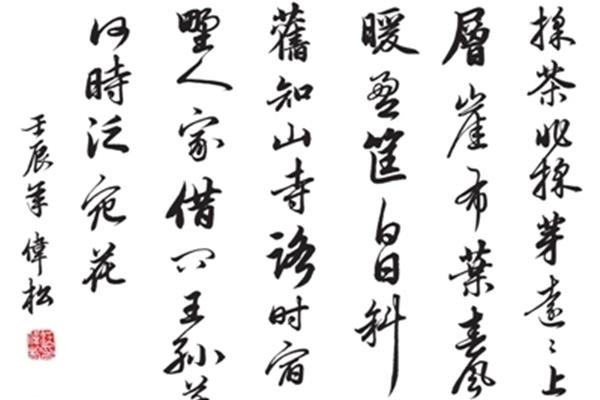 採茶非採芽遠〻上
層崖布葉春風
暖盈筐白日斜
舊知山寺路时宿
墅人家借问王孙草
何時泛宛花
壬辰年偉松